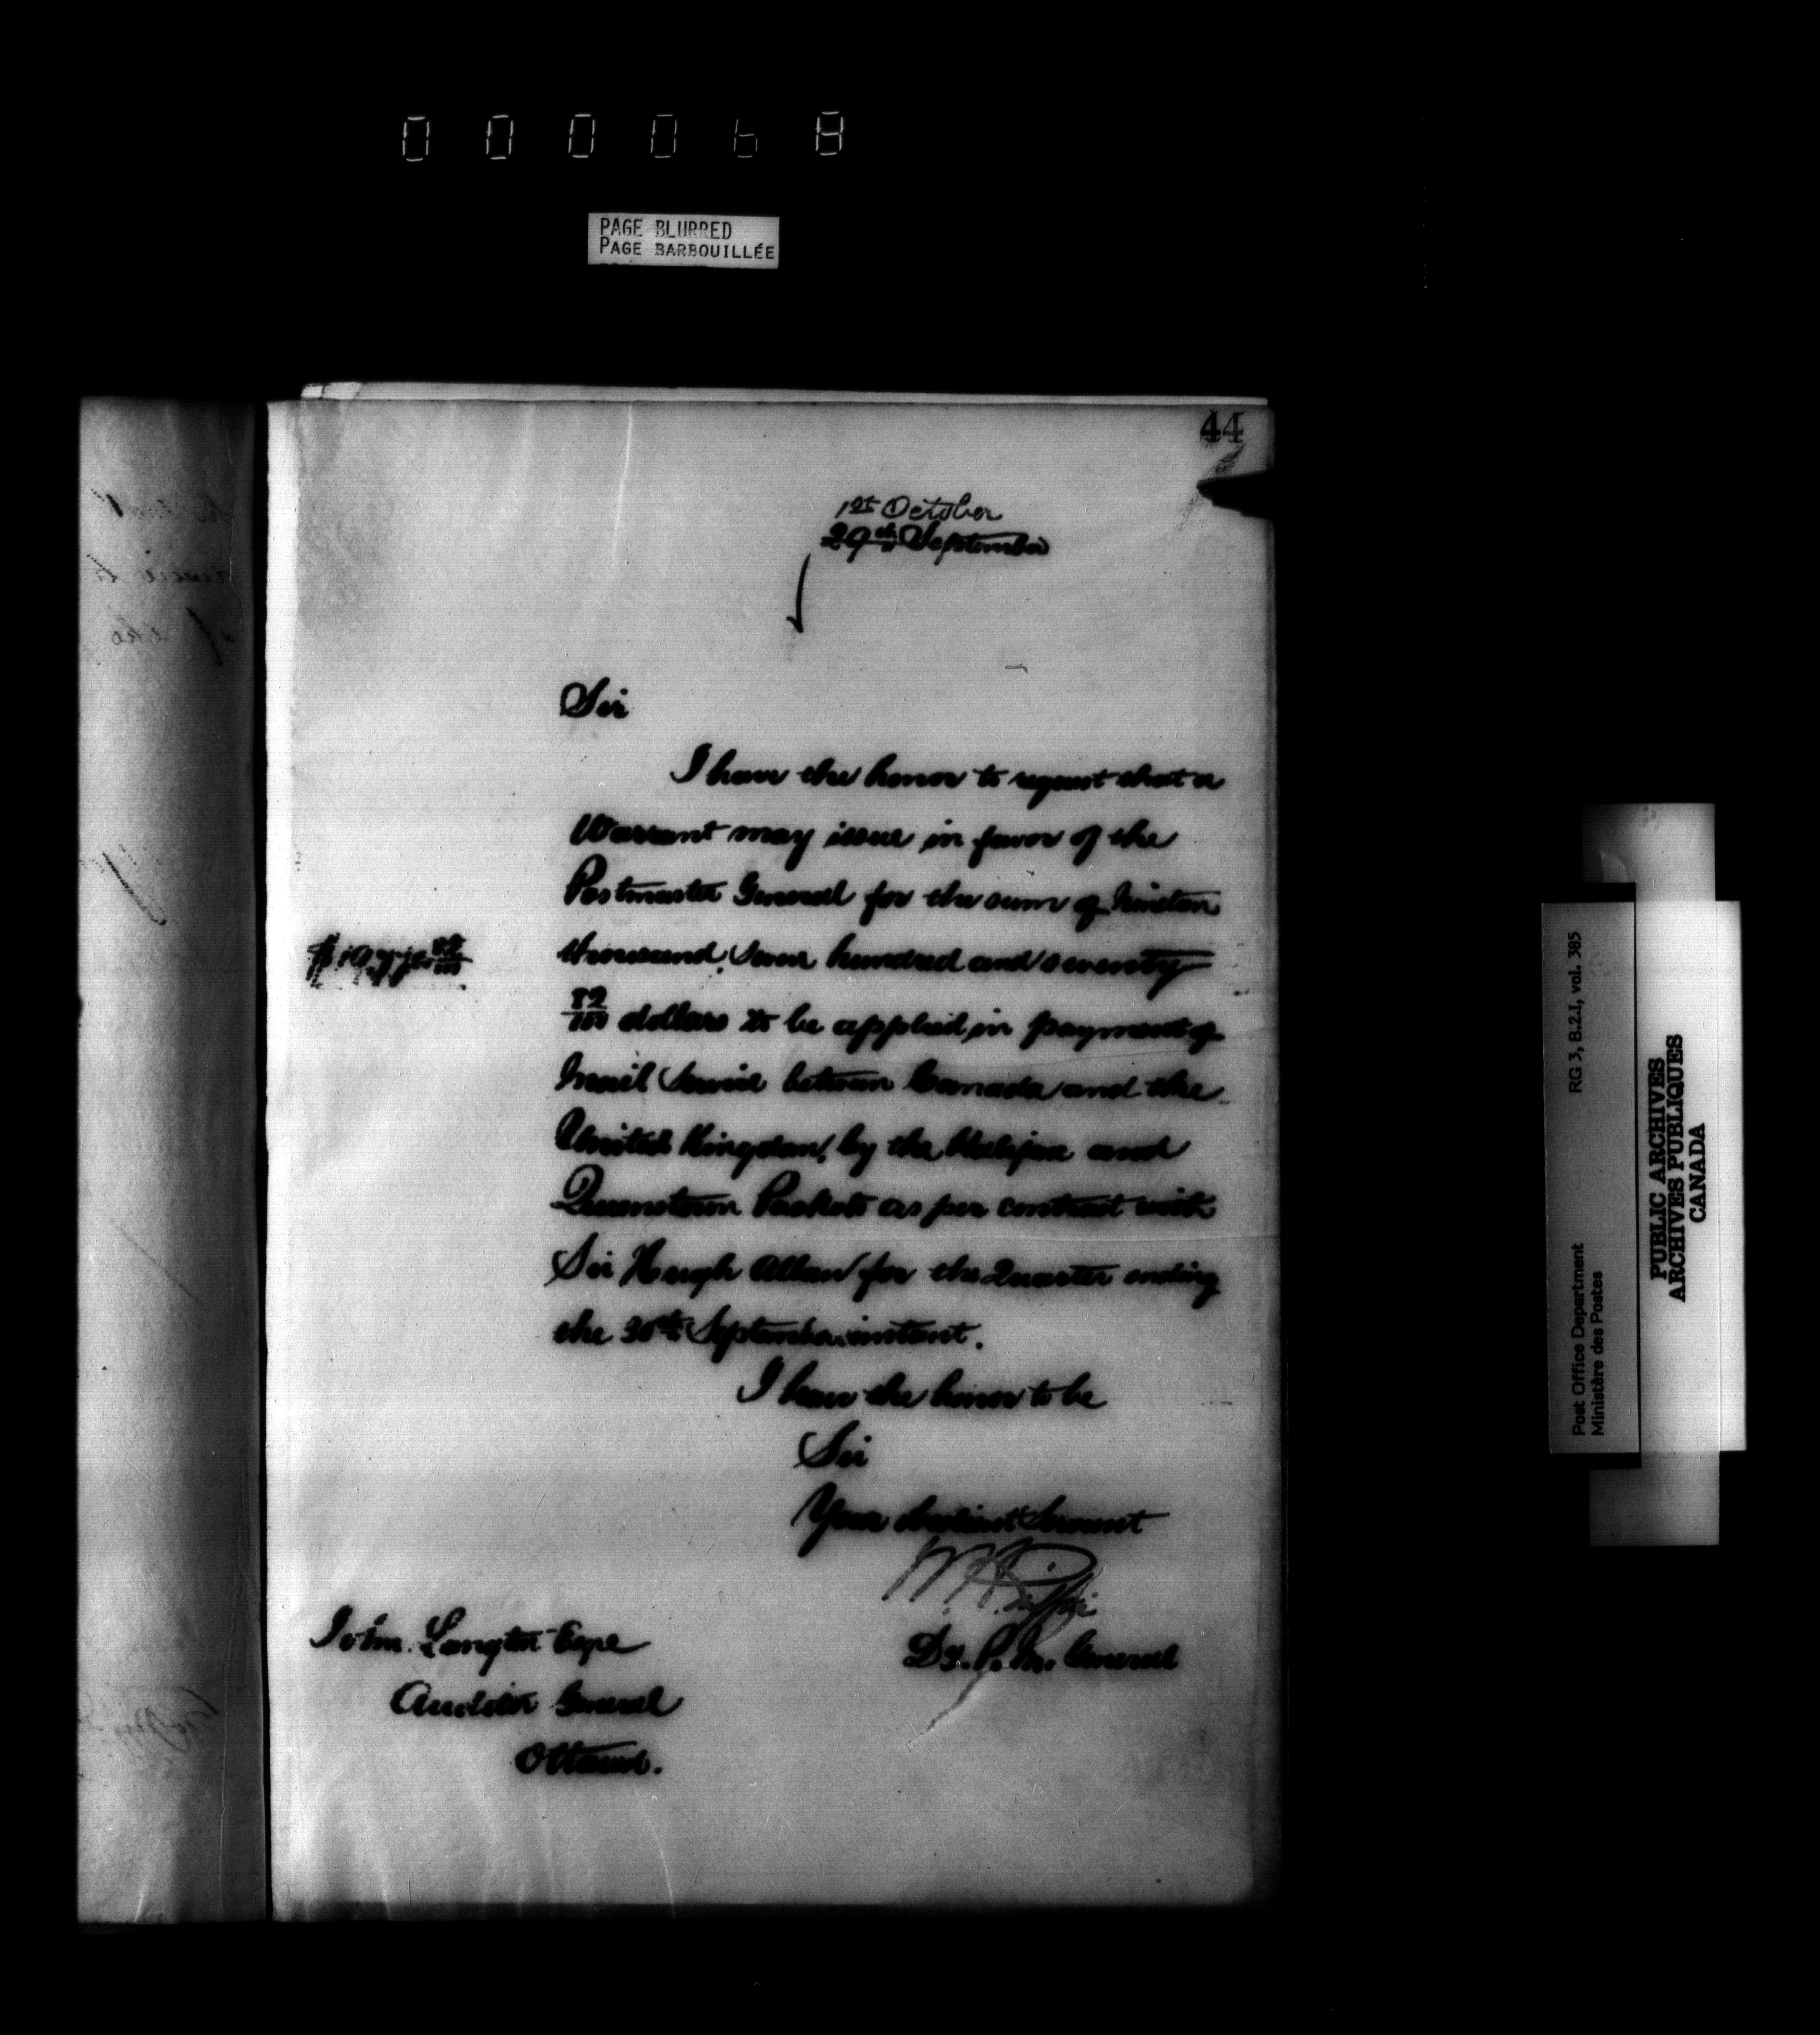 000068
PAGE BLURRED
PAGE BARBOUILLÉE
44
1st October
29th September
Sir
I have the honor to request that a
Warrant may issue in favor of the
Postmaster General for the sum of Nineteen
$19,770 82/100
thousand, Seven hundred and seventy
82/100 dollars to be applied in payment of
Mail Service between Canada and the
United Kingdom, by the Halifax and
Queenstown Packets as per contract with
Sir Hugh Allan for the Quarter ending
the 30th September instant.
I have the honor to be
Sir
Your obedient Servant
W. H. Griffin
Dy. P. M. General
John Langton Esqre
Auditor General
Ottawa.
RG 3, B.2.I, vol. 385
Post Office Department
Ministère des Postes
PUBLIC ARCHIVES
ARCHIVES PUBLIQUES
CANADA